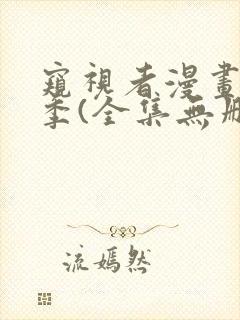 窺視者漫畫
季(全集無刪
流嫣然